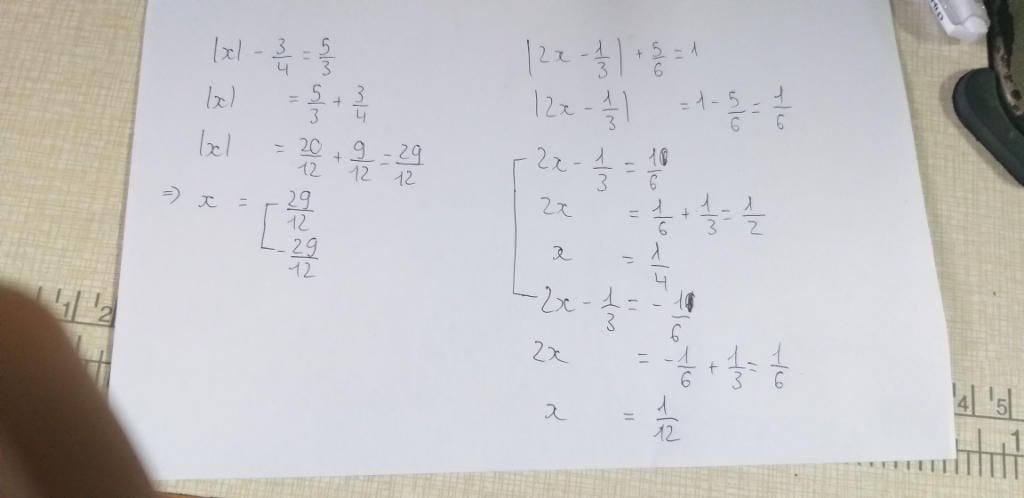 |x| - 3/4 = 5/3
|x| = 5/3 + 3/4
|x| = 20/12 + 9/12 = 29/12
=> x = [ 29/12
- 29/12
|2x - 1/3| + 5/6 = 1
|2x - 1/3| = 1 - 5/6 = 1/6
2x - 1/3 = 1/6
2x = 1/6 + 1/3 = 1/2
x = 1/4
2x - 1/3 = - 1/6
2x = - 1/6 + 1/3 = 1/6
x = 1/12
1 2
4 5
1